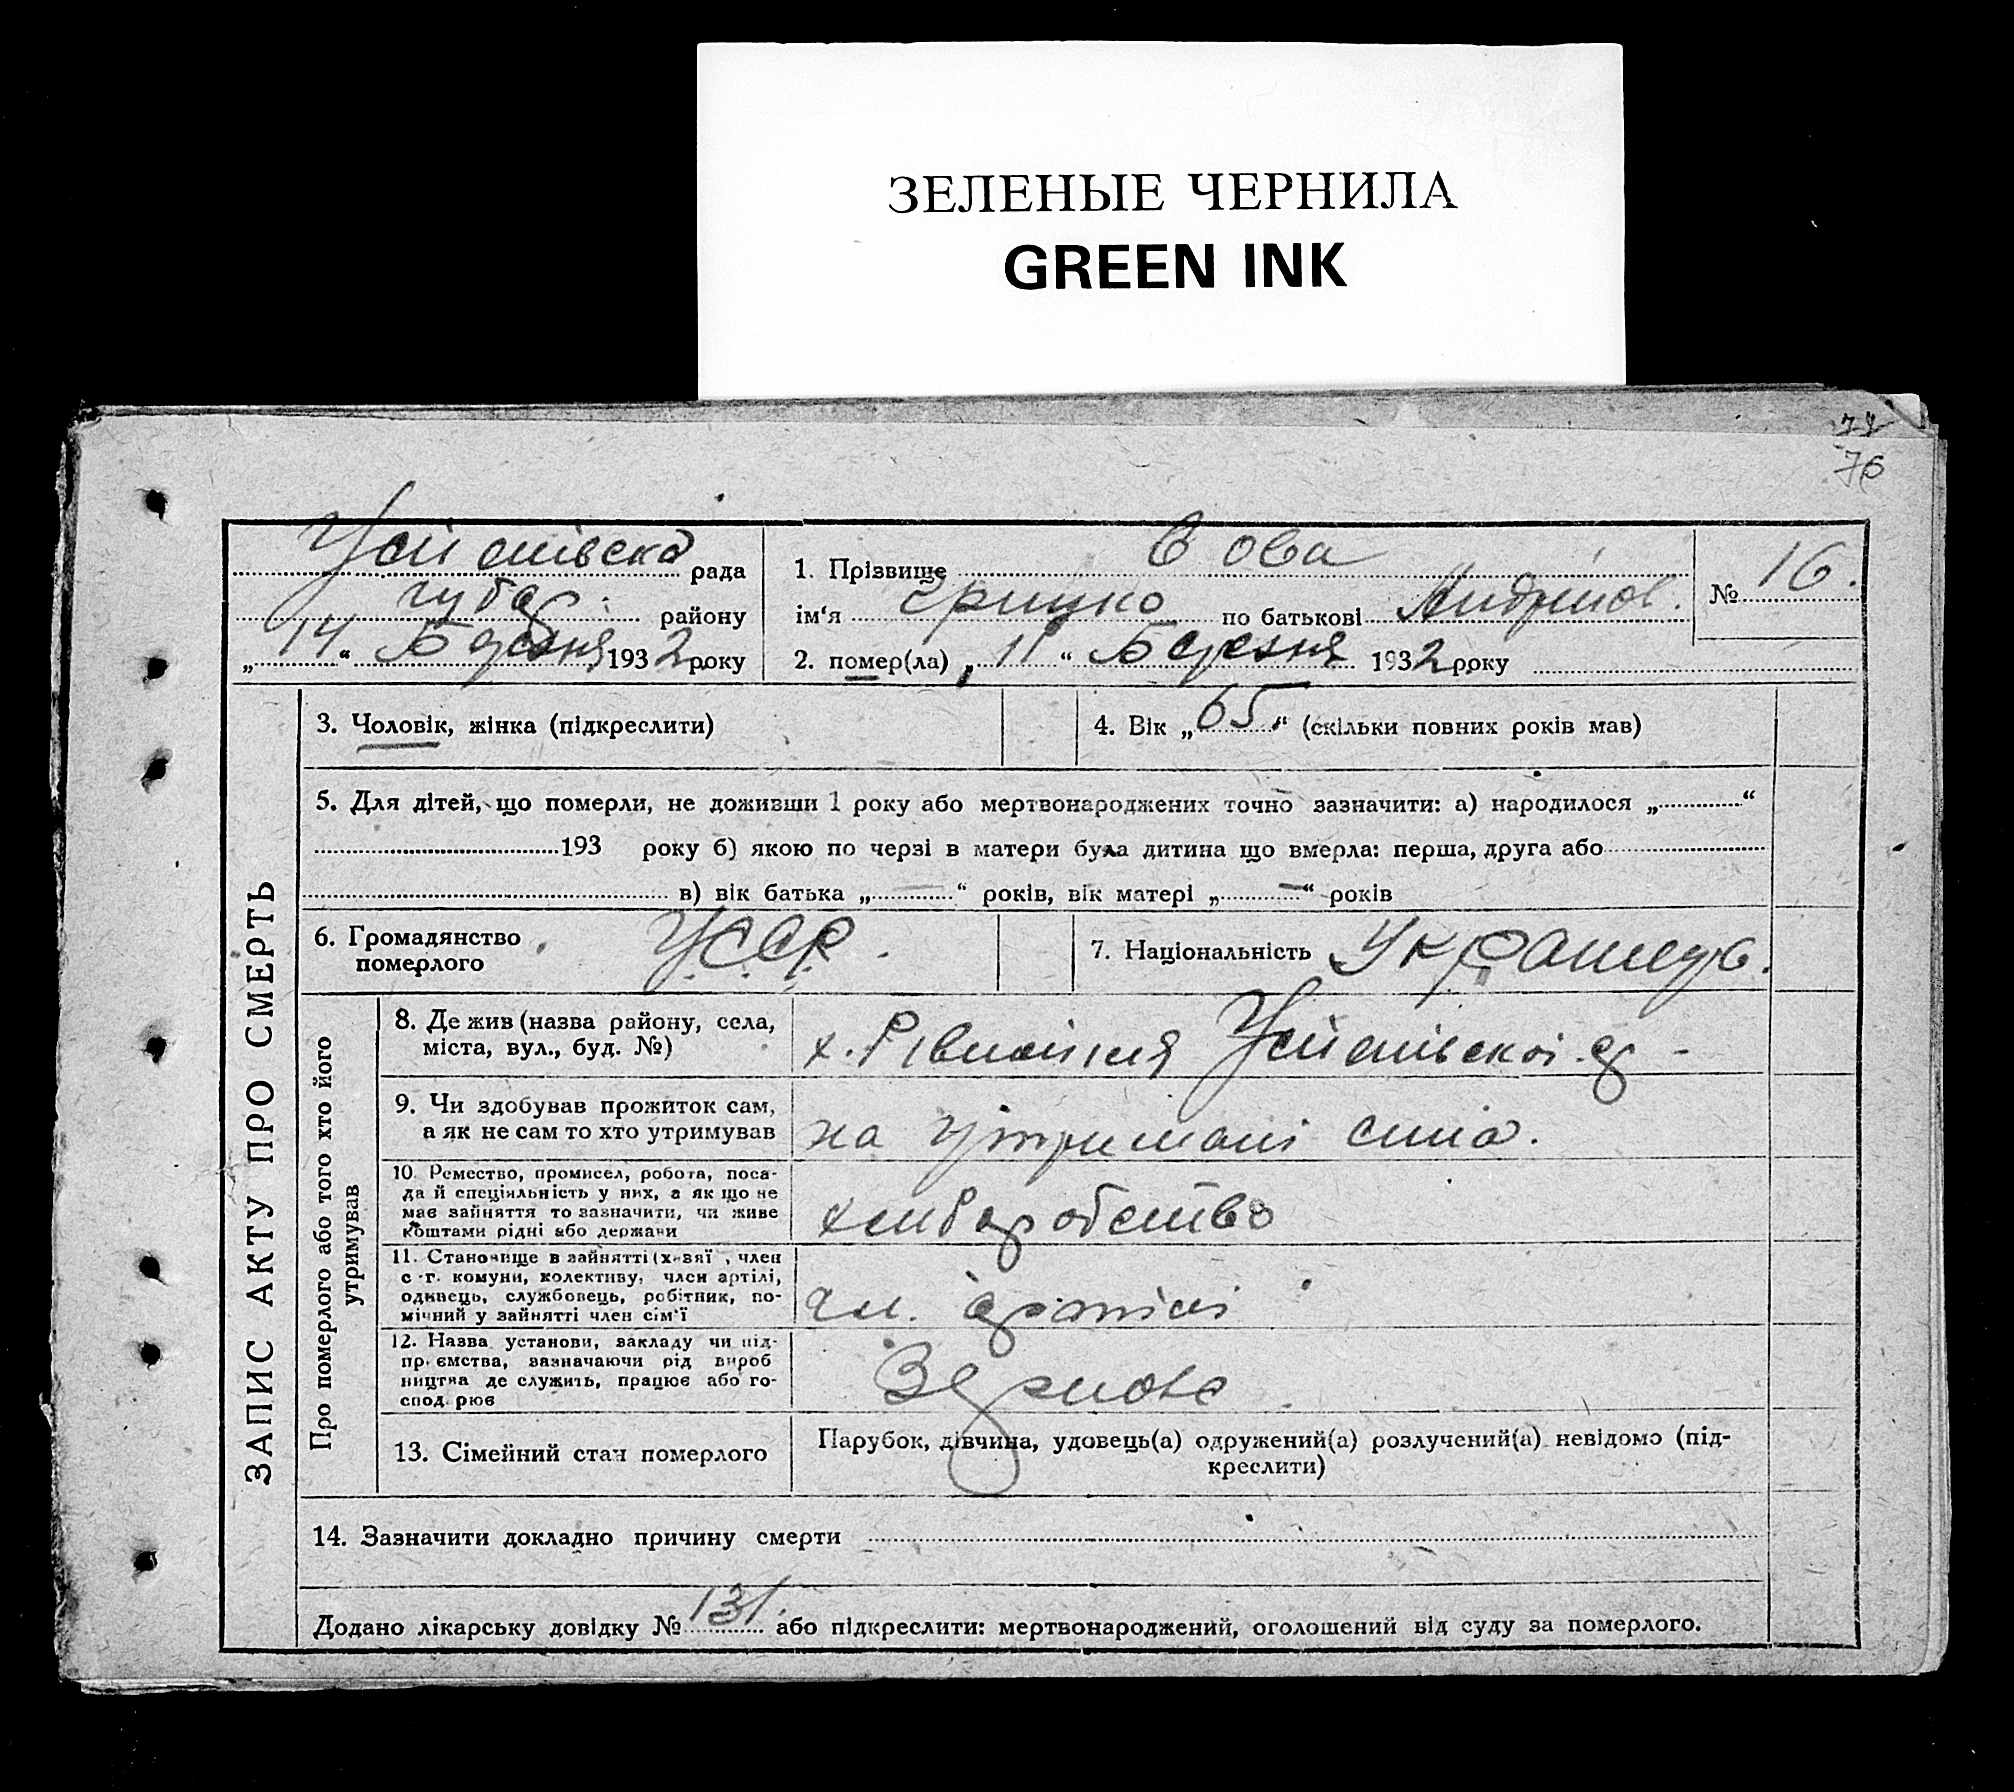 ЗЕЛЕНЫЕ ЧЕРНИЛА
GREEN INK
76
рада
1. Прізвище Сова
№ 16.
району
ім‘я Грицко по батькові Андріїов.
„14“ Березня 1932 року
2. помер(ла) „11“ Березня 1932 року
ЗАПИС АКТУ ПРО СМЕРТЬ
3. Чоловік, жінка (підкреслити)
4. Вік „65“ (скільки повних років мав)
5. Для дітей, що померли, не доживши 1 року або мертвонароджених точно зазначити: а) народилося „ “
193 року б) якою по черзі в матери була дитина що вмерла: перша, друга або
в) вік батька „—“ років, вік матері „—“ років
6. Громадянство померлого УССР.
7. Національність Украинець.
Про померлого або того хто його утримував
8. Де жив (назва району, села,
міста, вул., буд. №)
х.
9. Чи здобував прожиток сам,
а як не сам то хто утримував
на утримані сина.
10. Ремество, промисел, робота, поса-
да й спеціяльність у них, а як що не
має зайняття то зазначити, чи живе
коштами рідні або держави
хлиборобство
11. Становище в зайнятті (хазяї, член
с.-г. комуни, колективу, член артілі,
одинець, службовець, робітник, по-
мічний у зайнятті член сім'ї
чл. артілі
12. Назва установи, закладу чи під-
приємства, зазначаючи рід вироб
ництва де служить, працює або го-
сподарює
Зернове
13. Сімейний стан померлого
Парубок, дівчина, удовець(а) одружений(а) розлучений(а) невідомо (під-
креслити)
14. Зазначити докладно причину смерти
Додано лікарську довідку № 131 або підкреслити: мертвонароджений, оголошений від суду за померлого.